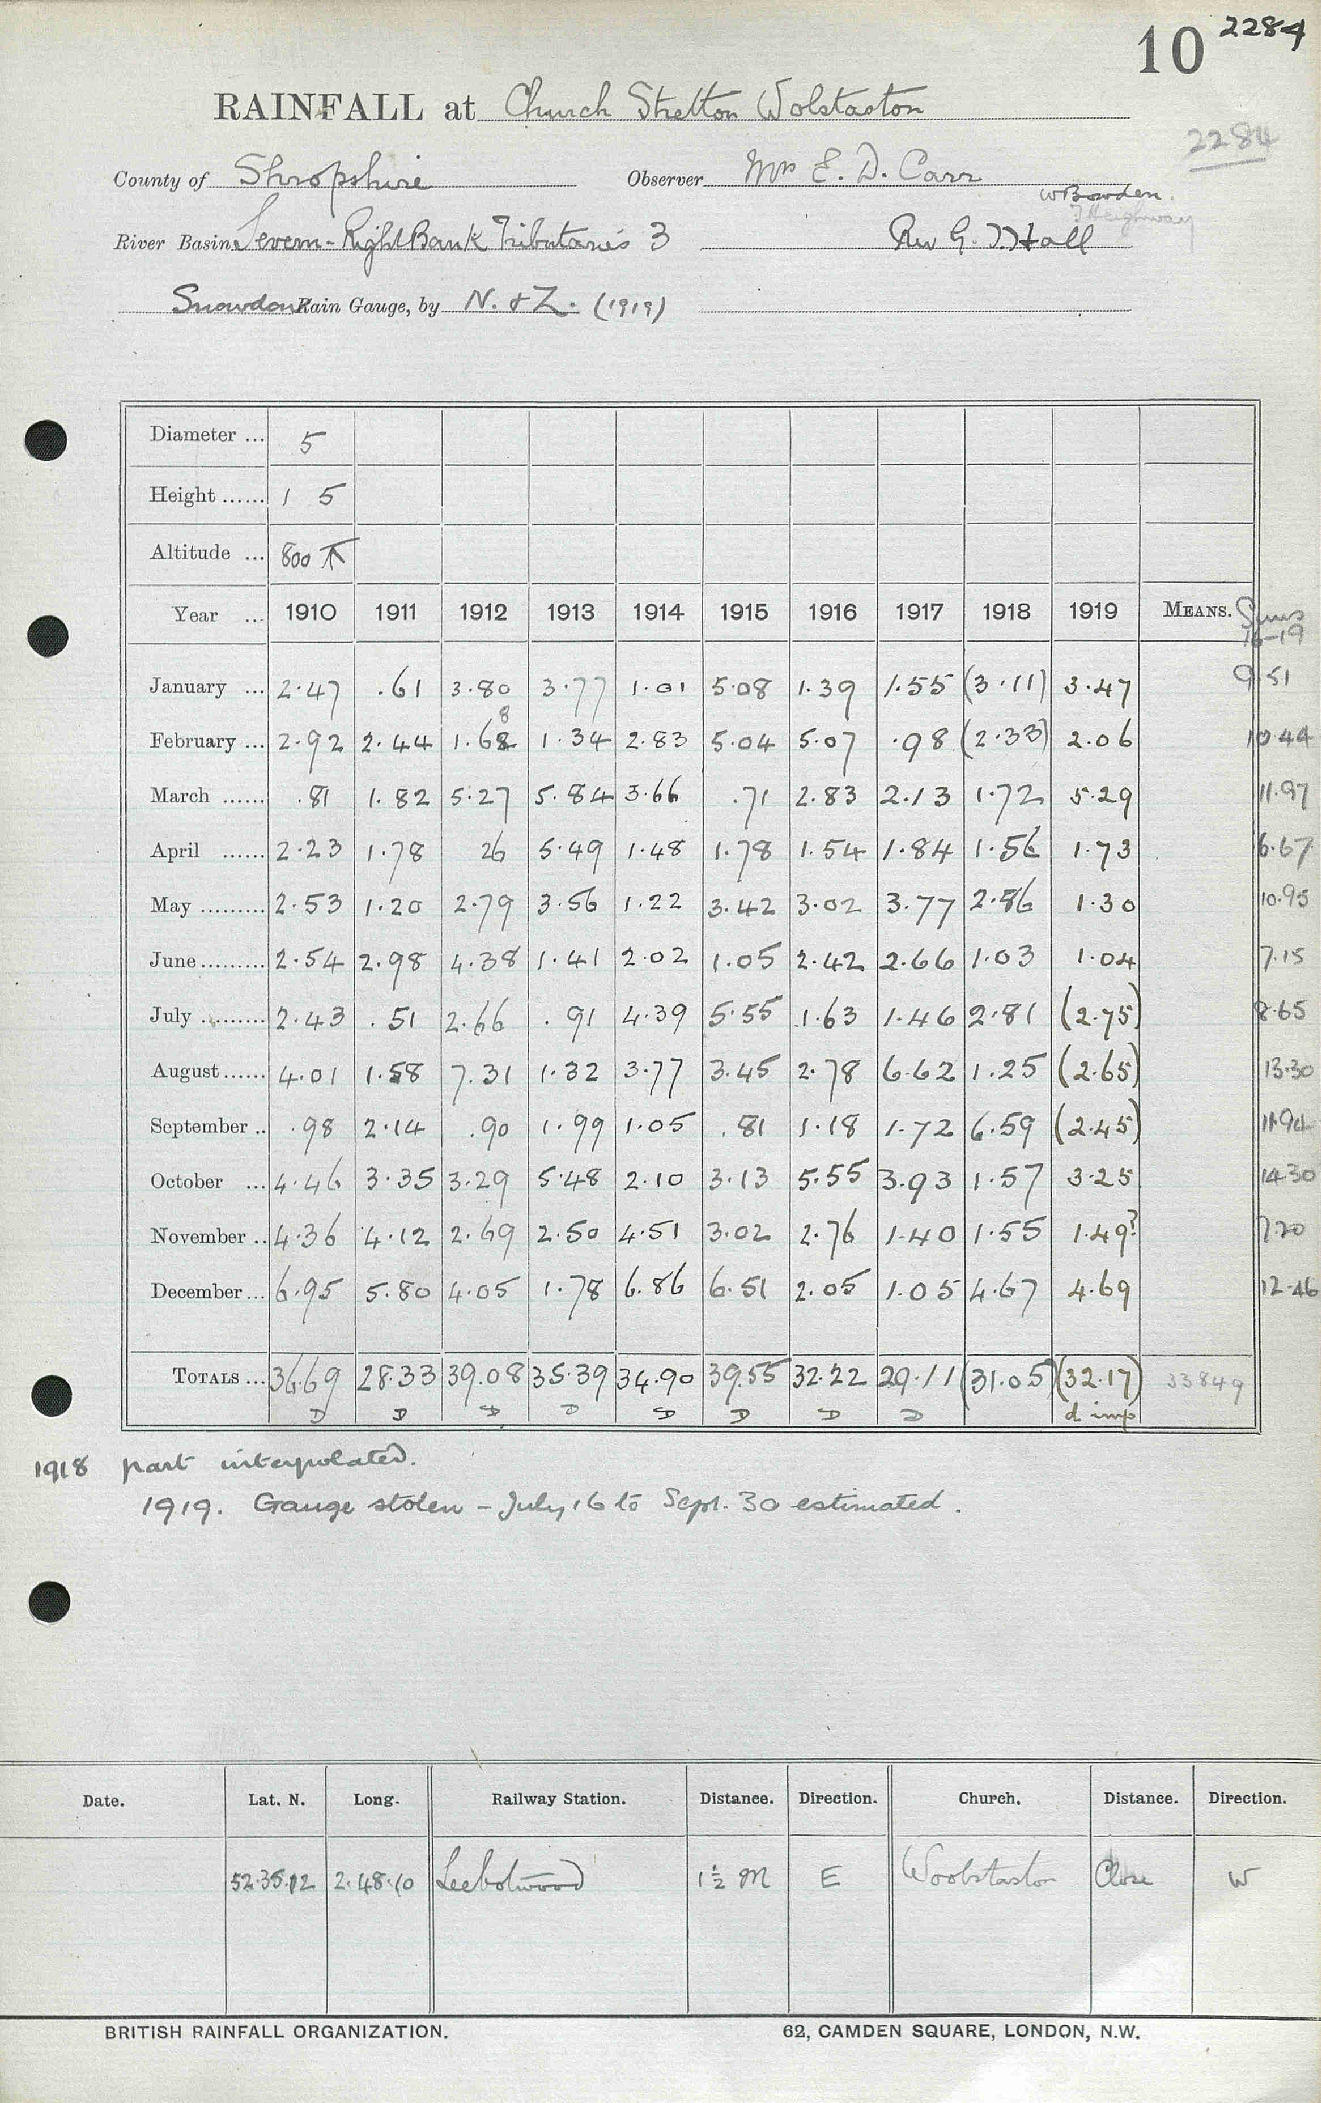 10 2284
RAINFALL at Church Stretton Wolstaston
2284
County of Shropshire Observer Mrs E. D. Carr
W Bowden.
River Basin Severn - Right Bank Tributaries 3 Rev G. Hall
Snowdon Rain Gauge, by N. & Z. (1919)
Diameter ... 5
Height ...... 1 5
Altitude ... 800
Year ... 1910 1911 1912 1913 1914 1915 1916 1917 1918 1919 MEANS. Sums 16-19
January ... 2.47 .61 3.80 3.77 1.01 5.08 1.39 1.55 (3.11) 3.47 9.51
8
February ... 2.92 2.44 1.68 1.34 2.83 5.04 5.07 .98 (2.33) 2.06 10.44
March ...... .81 1.82 5.27 5.84 3.66 .71 2.83 2.13 1.72 5.29 11.97
April ...... 2.23 1.78 26 5.49 1.48 1.78 1.54 1.84 1.56 1.73 6.67
May ......... 2.53 1.20 2.79 3.56 1.22 3.42 3.02 3.77 2.86 1.30 10.95
June ......... 2.54 2.98 4.38 1.41 2.02 1.05 2.42 2.66 1.03 1.04 7.15
July ......... 2.43 .51 2.66 .91 4.39 5.55 1.63 1.46 2.81 (2.75) 8.65
August ...... 4.01 1.58 7.31 1.32 3.77 3.45 2.78 6.62 1.25 (2.65) 13.30
September .. .98 2.14 .90 1.99 1.05 .81 1.18 1.72 6.59 (2.45) 11.94
October ... 4.46 3.35 3.29 5.48 2.10 3.13 5.55 3.93 1.57 3.25 14.30
November .. 4.36 4.12 2.69 2.50 4.51 3.02 2.76 1.40 1.55 1.49? 7.20
December ... 6.95 5.80 4.05 1.78 6.86 6.51 2.05 1.05 4.67 4.69 12.46
TOTALS ... 36.69 28.33 39.08 35.39 34.90 39.55 32.22 29.11 (31.05) (32.17) 33849
D D D D D D D D d imp
1918 part interpolated.
1919. Gauge stolen - July 16 to Sept. 30 estimated.
Date. Lat. N. Long. Railway Station. Distance. Direction. Church. Distance. Direction.
52.35.12 2.48.10 Leebotwood 1½ M E Woolstaston Close W
BRITISH RAINFALL ORGANIZATION. 62, CAMDEN SQUARE, LONDON, N.W.